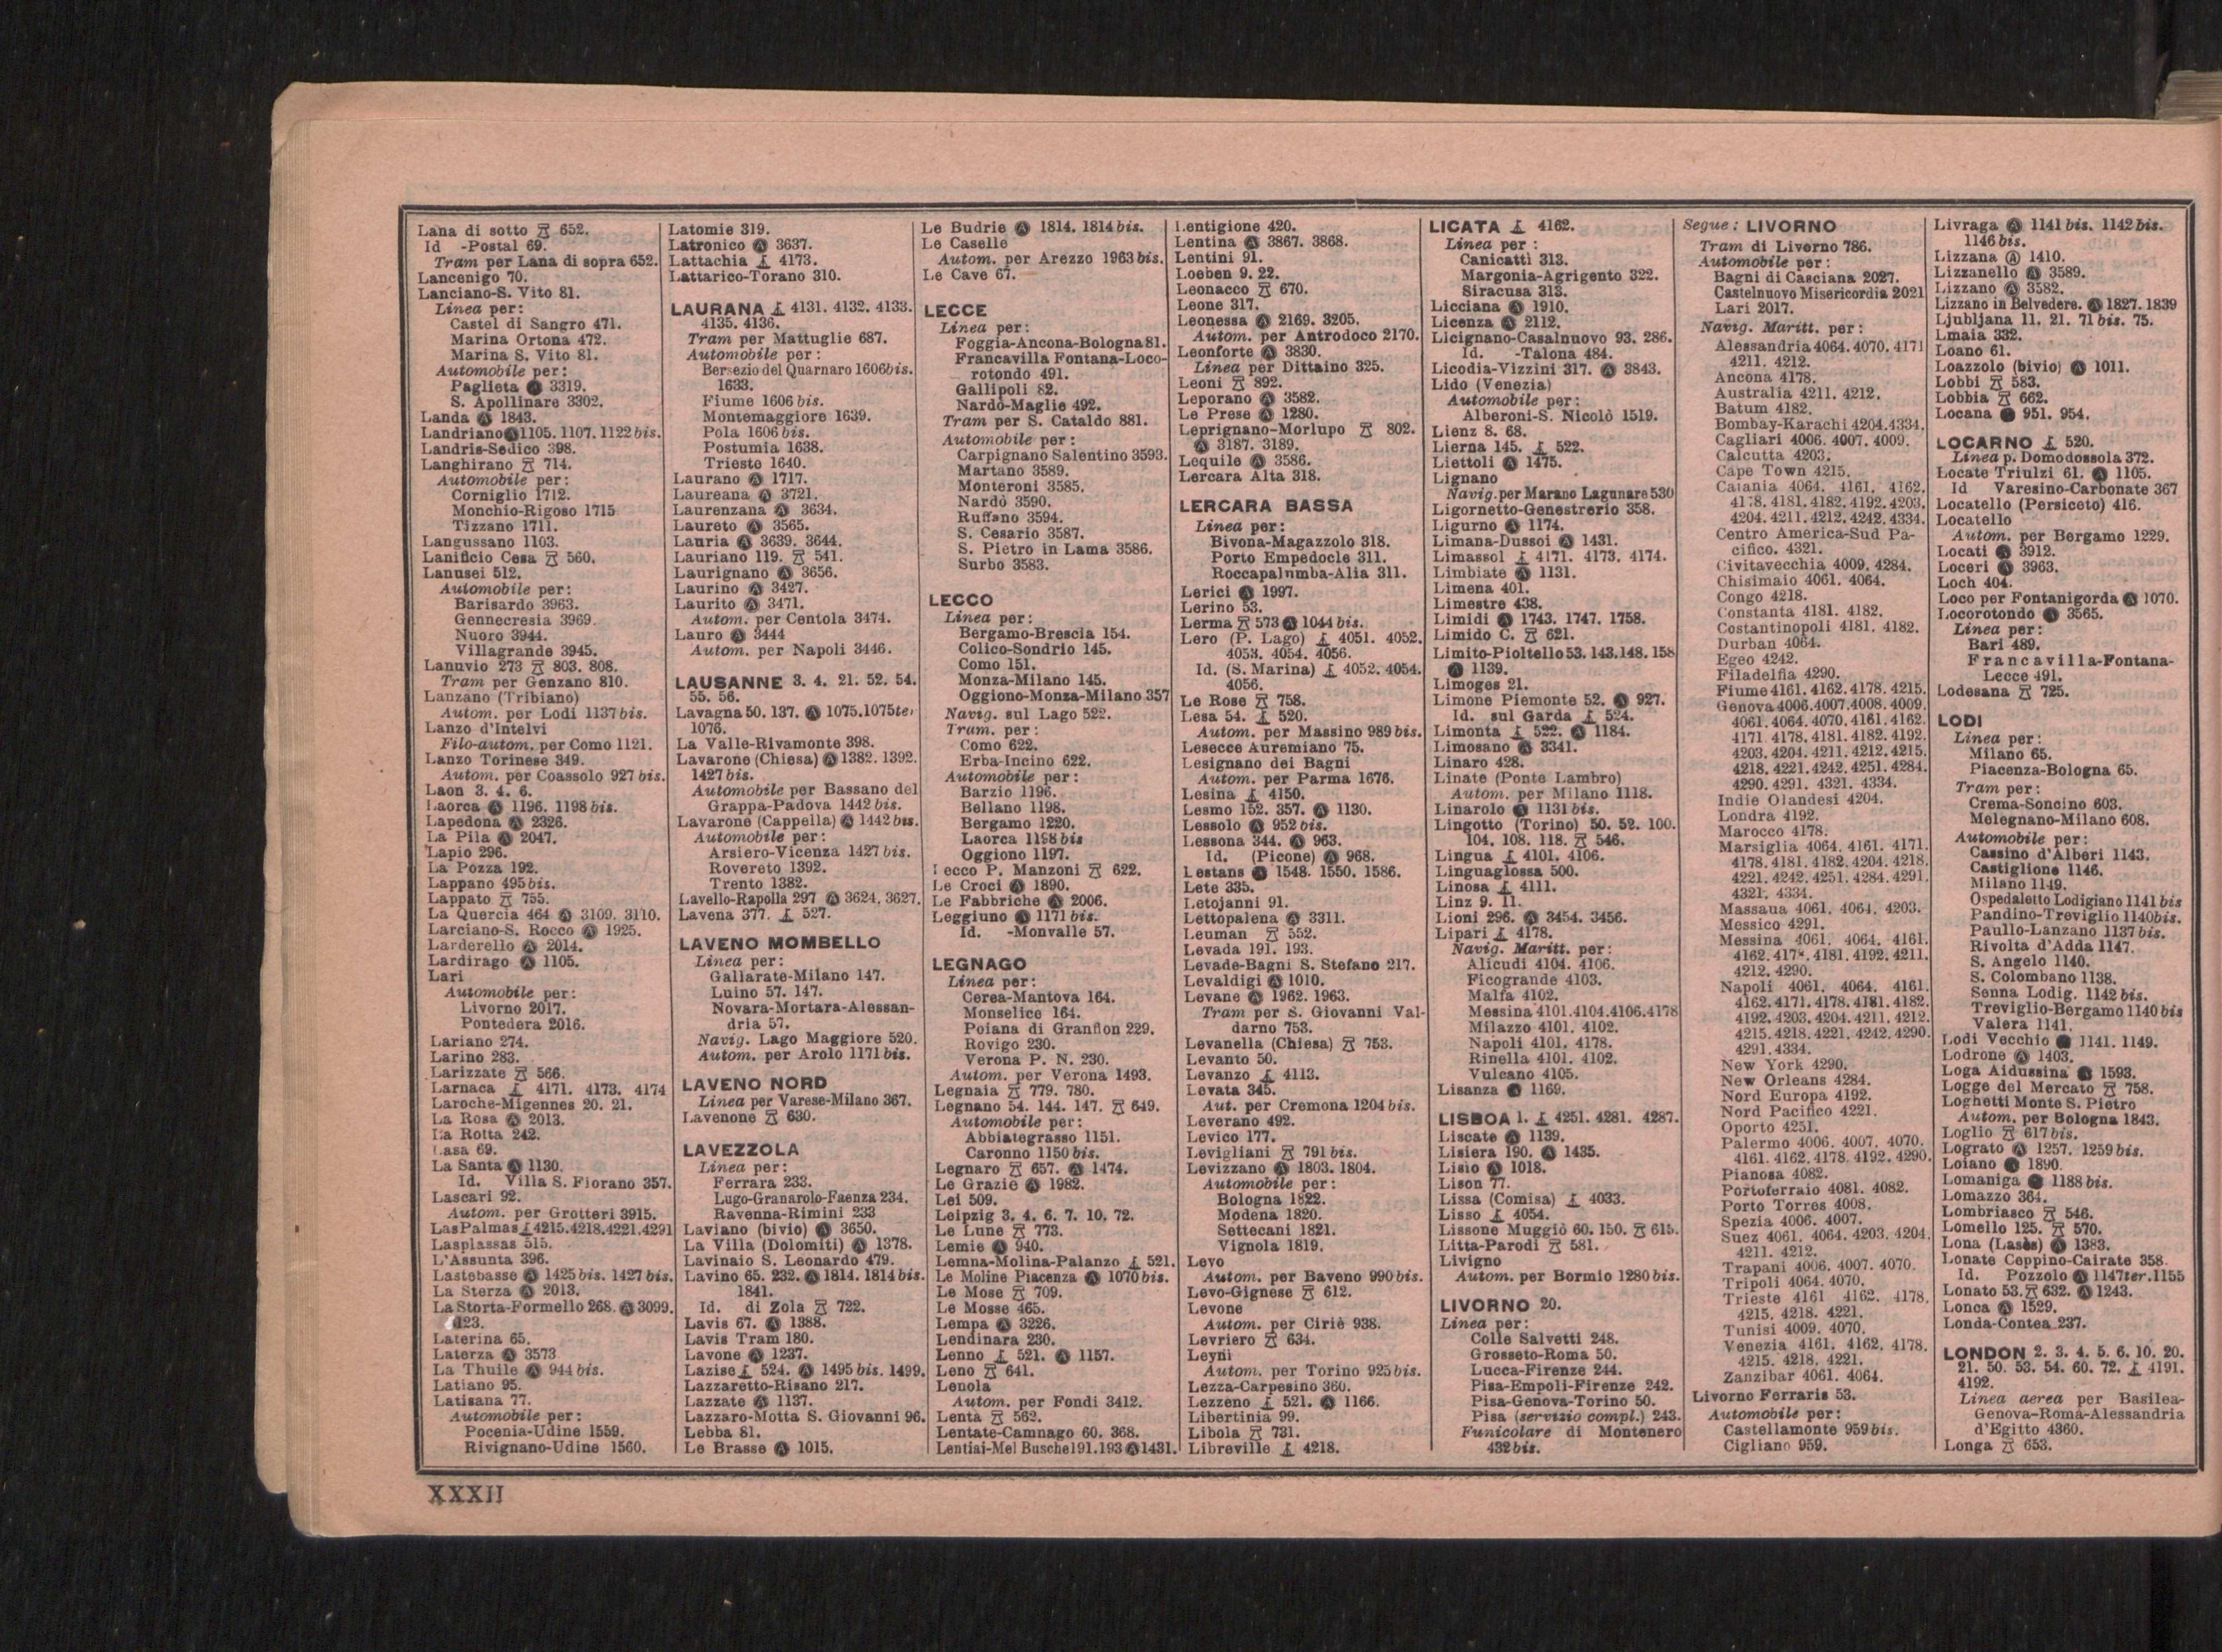 Lana di sotto 652.
Id -Postal 69.
Tram per Lana di sopra 652.
Lancenigo 70.
Lanciano-S. Vito 81.
Linea per:
Castel di Sangro 471.
Marina Ortona 472.
Marina S. Vito 81.
Automobile per:
Paglieta Ⓐ 3319.
S. Apollinare 3302.
Landa Ⓐ 1843.
Landriano Ⓐ 1105. 1107. 1122 bis.
Landris-Sedico 398.
Langhirano 714.
Automobile per:
Corniglio 1712.
Monchio-Rigoso 1715
Tizzano 1711.
Langussano 1103.
Lanificio Cesa 560.
Lanusei 512.
Automobile per:
Barisardo 3963.
Gennecresia 3969.
Nuoro 3944.
Villagrande 3945.
Lanuvio 273 803. 808.
Tram per Genzano 810.
Lanzano (Tribiano)
Autom. per Lodi 1137 bis.
Lanzo d'Intelvi
Filo-autom. per Como 1121.
Lanzo Torinese 349.
Autom. per Coassolo 927 bis.
Laon 3. 4. 6.
Laorca Ⓐ 1196. 1198 bis.
Lapedona Ⓐ 2326.
La Pila Ⓐ 2047.
Lapio 296.
La Pozza 192.
Lappano 495 bis.
Lappato 755.
La Quercia 464 Ⓐ 3109. 3110.
Larciano-S. Rocco Ⓐ 1925.
Larderello Ⓐ 2014.
Lardirago Ⓐ 1105.
Lari
Automobile per:
Livorno 2017.
Pontedera 2016.
Lariano 274.
Larino 283.
Larizzate 566.
Larnaca 4171. 4173. 4174
Laroche-Migennes 20. 21.
La Rosa Ⓐ 2013.
La Rotta 242.
Lasa 69.
La Santa Ⓐ 1130.
Id. Villa S. Fiorano 357.
Lascari 92.
Autom. per Grotteri 3915.
Las Palmas 4215. 4218. 4221. 4291
Lasplassas 515.
L'Assunta 396.
Lastebasse Ⓐ 1425 bis. 1427 bis.
La Sterza Ⓐ 2013.
La Storta-Formello 268. Ⓐ 3099.
Laterina 65.
Laterza Ⓐ 3573
La Thuile Ⓐ 944 bis.
Latiano 95.
Latisana 77.
Automobile per:
Pocenia-Udine 1559.
Rivignano-Udine 1560.
Latomie 319.
Latronico Ⓐ 3637.
Lattachia 4173.
Lattarico-Torano 310.
LAURANA 4131. 4132. 4133.
4135. 4136.
Tram per Mattuglie 687.
Automobile per:
Bersezio del Quarnaro 1606bis.
1633.
Fiume 1606 bis.
Montemaggiore 1639.
Pola 1606 bis.
Postumia 1638.
Trieste 1640.
Laurano Ⓐ 1717.
Laureana Ⓐ 3721.
Laurenzana Ⓐ 3634.
Laureto Ⓐ 3565.
Lauria Ⓐ 3639. 3644.
Lauriano 119. 541.
Laurignano Ⓐ 3656.
Laurino Ⓐ 3427.
Laurito Ⓐ 3471.
Autom. per Centola 3474.
Lauro Ⓐ 3444
Autom. per Napoli 3446.
LAUSANNE 3. 4. 21. 52. 54.
55. 56.
Lavagna 50. 137. Ⓐ 1075. 1075ter
1076.
La Valle-Rivamonte 398.
Lavarone (Chiesa) Ⓐ 1382. 1392.
1427 bis.
Automobile per Bassano del
Grappa-Padova 1442 bis.
Lavarone (Cappella) Ⓐ 1442 bis.
Automobile per:
Arsiero-Vicenza 1427 bis.
Rovereto 1392.
Trento 1382.
Lavello-Rapolla 297 Ⓐ 3624. 3627.
Lavena 377. 527.
LAVENO MOMBELLO
Linea per:
Gallarate-Milano 147.
Luino 57. 147.
Novara-Mortara-Alessan-
dria 57.
Navig. Lago Maggiore 520.
Autom. per Arolo 1171 bis.
LAVENO NORD
Linea per Varese-Milano 367.
Lavenone 630.
LAVEZZOLA
Linea per:
Ferrara 233.
Lugo-Granarolo-Faenza 234.
Ravenna-Rimini 233
Laviano (bivio) Ⓐ 3650.
La Villa (Dolomiti) Ⓐ 1378.
Lavinaio S. Leonardo 479.
Lavino 65. 232. Ⓐ 1814. 1814 bis.
1841.
Id. di Zola 722.
Lavis 67. Ⓐ 1388.
Lavis Tram 180.
Lavone Ⓐ 1237.
Lazise 524. Ⓐ 1495 bis. 1499.
Lazzaretto-Risano 217.
Lazzate Ⓐ 1137.
Lazzaro-Motta S. Giovanni 96.
Lebba 81.
Le Brasse Ⓐ 1015.
Le Budrie Ⓐ 1814. 1814 bis.
Le Caselle
Autom. per Arezzo 1963 bis.
Le Cave 67.
LECCE
Linea per:
Foggia-Ancona-Bologna 81.
Francavilla Fontana-Loco-
rotondo 491.
Gallipoli 82.
Nardò-Maglie 492.
Tram per S. Cataldo 881.
Automobile per:
Carpignano Salentino 3593.
Martano 3589.
Monteroni 3585.
Nardò 3590.
Ruffano 3594.
S. Cesario 3587.
S. Pietro in Lama 3586.
Surbo 3583.
LECCO
Linea per:
Bergamo-Brescia 154.
Colico-Sondrio 145.
Como 151.
Monza-Milano 145.
Oggiono-Monza-Milano 357
Navig. sul Lago 522.
Tram. per:
Como 622.
Erba-Incino 622.
Automobile per:
Barzio 1196.
Bellano 1198.
Bergamo 1220.
Laorca 1198 bis
Oggiono 1197.
Lecco P. Manzoni 622.
Le Croci Ⓐ 1890.
Le Fabbriche Ⓐ 2006.
Leggiuno Ⓐ 1171 bis.
Id. -Monvalle 57.
LEGNAGO
Linea per:
Cerea-Mantova 164.
Monselice 164.
Poiana di Granfion 229.
Rovigo 230.
Verona P. N. 230.
Autom. per Verona 1493.
Legnaia 779. 780.
Legnano 54. 144. 147. 649.
Automobile per:
Abbiategrasso 1151.
Caronno 1150 bis.
Legnaro 657. Ⓐ 1474.
Le Grazie Ⓐ 1982.
Lei 509.
Leipzig 3. 4. 6. 7. 10. 72.
Le Lune 773.
Lemie Ⓐ 940.
Lemna-Molina-Palanzo 521.
Le Moline Piacenza Ⓐ 1070 bis.
Le Mose 709.
Le Mosse 465.
Lempa Ⓐ 3226.
Lendinara 230.
Lenno 521. Ⓐ 1157.
Leno 641.
Lenola
Autom. per Fondi 3412.
Lenta 562.
Lentate-Camnago 60. 368.
Lentiai-Mel Busche 191. 193 Ⓐ 1431.
Lentigione 420.
Lentina Ⓐ 3867. 3868.
Lentini 91.
Loeben 9. 22.
Leonacco 670.
Leone 317.
Leonessa Ⓐ 2169. 3205.
Autom. per Antrodoco 2170.
Leonforte Ⓐ 3830.
Linea per Dittaino 325.
Leoni 892.
Leporano Ⓐ 3582.
Le Prese Ⓐ 1280.
Leprignano-Morlupo 802.
Ⓐ 3187. 3189.
Lequile Ⓐ 3586.
Lercara Alta 318.
LERCARA BASSA
Linea per:
Bivona-Magazzolo 318.
Porto Empedocle 311.
Roccapalumba-Alia 311.
Lerici Ⓐ 1997.
Lerino 53.
Lerma 573 Ⓐ 1044 bis.
Lero (P. Lago) 4051. 4052.
4053. 4054. 4056.
Id. (S. Marina) 4052. 4054.
4056.
Le Rose 758.
Lesa 54. 520.
Autom. per Massino 989 bis.
Lesecce Auremiano 75.
Lesignano dei Bagni
Autom. per Parma 1676.
Lesina 4150.
Lesmo 152. 357. Ⓐ 1130.
Lessolo Ⓐ 952 bis.
Lessona 344. Ⓐ 963.
Id. (Picone) Ⓐ 968.
Lestans Ⓐ 1548. 1550. 1586.
Lete 335.
Letojanni 91.
Lettopalena Ⓐ 3311.
Leuman 552.
Levada 191. 193.
Levade-Bagni S. Stefano 217.
Levaldigi Ⓐ 1010.
Levane Ⓐ 1962. 1963.
Tram per S. Giovanni Val-
darno 753.
Levanella (Chiesa) 753.
Levanto 50.
Levanzo 4113.
Levata 345.
Aut. per Cremona 1204 bis.
Leverano 492.
Levico 177.
Levigliani 791 bis.
Levizzano Ⓐ 1803. 1804.
Automobile per:
Bologna 1822.
Modena 1820.
Settecani 1821.
Vignola 1819.
Levo
Autom. per Baveno 990 bis.
Levo-Gignese 612.
Levone
Autom. per Ciriè 938.
Levriero 634.
Leyni
Autom. per Torino 925 bis.
Lezza-Carpesino 360.
Lezzeno 521. Ⓐ 1166.
Libertinia 99.
Libola 731.
Libreville 4218.
LICATA 4162.
Linea per:
Canicattì 313.
Margonia-Agrigento 322.
Siracusa 313.
Licciana Ⓐ 1910.
Licenza Ⓐ 2112.
Licignano-Casalnuovo 93. 286.
Id. -Talona 484.
Licodia-Vizzini 317. Ⓐ 3843.
Lido (Venezia)
Automobile per:
Alberoni-S. Nicolò 1519.
Lienz 8. 68.
Lierna 145. 522.
Liettoli Ⓐ 1475.
Lignano
Navig. per Marano Lagunare 530
Ligornetto-Genestrerio 358.
Ligurno Ⓐ 1174.
Limana-Dussoi Ⓐ 1431.
Limassol 4171. 4173. 4174.
Limbiate Ⓐ 1131.
Limena 401.
Limestre 438.
Limidi Ⓐ 1743. 1747. 1758.
Limido C. 621.
Limito-Pioltello 53. 143. 148. 158
Ⓐ 1139.
Limoges 21.
Limone Piemonte 52. Ⓐ 927.
Id. sul Garda 524.
Limonta 522. Ⓐ 1184.
Limosano Ⓐ 3341.
Linaro 428.
Linate (Ponte Lambro)
Autom. per Milano 1118.
Linarolo Ⓐ 1131 bis.
Lingotto (Torino) 50. 52. 100.
104. 108. 118. 546.
Lingua 4101. 4106.
Linguaglossa 500.
Linosa 4111.
Linz 9. 11.
Lioni 296. Ⓐ 3454. 3456.
Lipari 4178.
Navig. Maritt. per:
Alicudi 4104. 4106.
Ficogrande 4103.
Malfa 4102.
Messina 4101. 4104. 4106. 4178
Milazzo 4101. 4102.
Napoli 4101. 4178.
Rinella 4101. 4102.
Vulcano 4105.
Lisanza Ⓐ 1169.
LISBOA 1. 4251. 4281. 4287.
Liscate Ⓐ 1139.
Lisiera 190. Ⓐ 1435.
Lisio Ⓐ 1018.
Lison 77.
Lissa (Comisa) 4033.
Lisso 4054.
Lissone Muggiò 60. 150. 615.
Litta-Parodi 581.
Livigno
Autom. per Bormio 1280 bis.
LIVORNO 20.
Linea per:
Colle Salvetti 248.
Grosseto-Roma 50.
Lucca-Firenze 244.
Pisa-Empoli-Firenze 242.
Pisa-Genova-Torino 50.
Pisa (servizio compl.) 243.
Funicolare di Montenero
432 bis.
Segue: LIVORNO
Tram di Livorno 786.
Automobile per:
Bagni di Casciana 2027.
Castelnuovo Misericordia 2021
Lari 2017.
Navig. Maritt. per:
Alessandria 4064. 4070. 4171
4211. 4212.
Ancona 4178.
Australia 4211. 4212.
Batum 4182.
Bombay-Karachi 4204. 4334.
Cagliari 4006. 4007. 4009.
Calcutta 4203.
Cape Town 4215.
Catania 4064. 4161. 4162.
4178. 4181. 4182. 4192. 4203.
4204. 4211. 4212. 4242. 4334.
Centro America-Sud Pa-
cifico. 4321.
Civitavecchia 4009. 4284.
Chisimaio 4061. 4064.
Congo 4218.
Constanta 4181. 4182.
Costantinopoli 4181. 4182.
Durban 4064.
Egeo 4242.
Filadelfia 4290.
Fiume 4161. 4162. 4178. 4215.
Genova 4006. 4007. 4008. 4009.
4061. 4064. 4070. 4161. 4162.
4171. 4178. 4181. 4182. 4192.
4203. 4204. 4211. 4212. 4215.
4218. 4221. 4242. 4251. 4284.
4290. 4291. 4321. 4334.
Indie Olandesi 4204.
Londra 4192.
Marocco 4178.
Marsiglia 4064. 4161. 4171.
4178. 4181. 4182. 4204. 4218.
4221. 4242. 4251. 4284. 4291.
4321. 4334.
Massaua 4061. 4064. 4203.
Messico 4291.
Messina 4061. 4064. 4161.
4162. 4181. 4192. 4211.
4212. 4290.
Napoli 4061. 4064. 4161.
4162. 4171. 4178. 4181. 4182.
4192. 4203. 4204. 4211. 4212.
4215. 4218. 4221. 4242. 4290.
4291. 4334.
New York 4290.
New Orleans 4284.
Nord Europa 4192.
Nord Pacifico 4221.
Oporto 4251.
Palermo 4006. 4007. 4070.
4161. 4162. 4178. 4192. 4290.
Pianosa 4082.
Portoferraio 4081. 4082.
Porto Torres 4008.
Spezia 4006. 4007.
Suez 4061. 4064. 4203. 4204.
4211. 4212.
Trapani 4006. 4007. 4070.
Tripoli 4064. 4070.
Trieste 4161 4162. 4178.
4215. 4218. 4221.
Tunisi 4009. 4070.
Venezia 4161. 4162. 4178.
4215. 4218. 4221.
Zanzibar 4061. 4064.
Livorno Ferraris 53.
Automobile per:
Castellamonte 959 bis.
Cigliano 959.
Livraga Ⓐ 1141 bis. 1142 bis.
1146 bis.
Lizzana Ⓐ 1410.
Lizzanello Ⓐ 3589.
Lizzano Ⓐ 3582.
Lizzano in Belvedere. Ⓐ 1827. 1839
Ljubljana 11. 21. 71 bis. 75.
Lmaia 332.
Loano 61.
Loazzolo (bivio) Ⓐ 1011.
Lobbi 583.
Lobbia 662.
Locana Ⓐ 951. 954.
LOCARNO 520.
Linea p. Domodossola 372.
Locate Triulzi 61. Ⓐ 1105.
Id Varesino-Carbonate 367
Locatello (Persiceto) 416.
Locatello
Autom. per Bergamo 1229.
Locati Ⓐ 3912.
Loceri Ⓐ 3963.
Loch 404.
Loco per Fontanigorda Ⓐ 1070.
Locorotondo Ⓐ 3565.
Linea per:
Bari 489.
Francavilla-Fontana-
Lecce 491.
Lodesana 725.
LODI
Linea per:
Milano 65.
Piacenza-Bologna 65.
Tram per:
Crema-Soncino 603.
Melegnano-Milano 608.
Automobile per:
Cassino d'Alberi 1143.
Castiglione 1146.
Milano 1149.
Ospedaletto Lodigiano 1141 bis
Pandino-Treviglio 1140bis.
Paullo-Lanzano 1137 bis.
Rivolta d'Adda 1147.
S. Angelo 1140.
S. Colombano 1138.
Senna Lodig. 1142 bis.
Treviglio-Bergamo 1140 bis
Valera 1141.
Lodi Vecchio Ⓐ 1141. 1149.
Lodrone Ⓐ 1403.
Loga Aidussina Ⓐ 1593.
Logge del Mercato 758.
Loghetti Monte S. Pietro
Autom. per Bologna 1843.
Loglio 617 bis.
Lograto Ⓐ 1257. 1259 bis.
Loiano Ⓐ 1890.
Lomaniga Ⓐ 1188 bis.
Lomazzo 364.
Lombriasco 546.
Lomello 125. 570.
Lona (Lasès) Ⓐ 1383.
Lonate Ceppino-Cairate 358
Id. Pozzolo Ⓐ 1147ter. 1155
Lonato 53. 632. Ⓐ 1243.
Lonca Ⓐ 1529.
Londa-Contea 237.
LONDON 2. 3. 4. 5. 6. 10. 20.
21. 50. 53. 54. 60. 72. 4191.
4192.
Linea aerea per Basilea-
Genova-Roma-Alessandria
d'Egitto 4360.
Longa 653.
XXXII